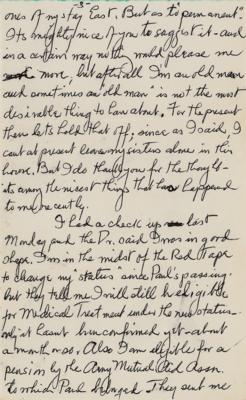 -3-
ones of my stay East. But as to "permanent"
Its mighty nice of you to suggest it - and
in a certain way noth would please me
more, but after all I'm an old man
and sometimes an "old man" is not the most
desirable thing to have about. For the present
then lets hold that off, since as I said, I
cant at present leave my sisters alone in this
house. But I do thank you for the thought -
its among the nicest thing that has happened
to me recently.
I had a check up last
Monday and the Dr. said I was in good
shape. I'm in the midst of the Red Tape
to change my "status" since Paul's passing.
but they tell me I will still be eligible
for Medical Treatment under the new status -
only it hasnt been confirmed yet - about
a month or so. Also I am eligible for a
pension by the Army Mutual Aid Assn.
to which Paul belonged. They sent me